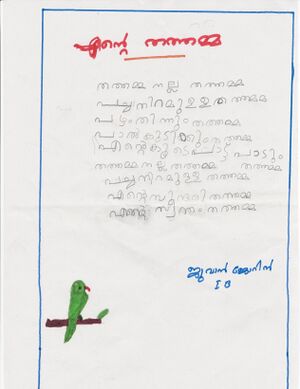 എന്റെ തത്തമ്മ
തത്തമ്മ നല്ല തത്തമ്മ
പച്ചനിറമുള്ള തത്തമ്മ
പഴംതിന്നും തത്തമ്മ
പാൽകുടിക്കും തത്തമ്മ
എന്റെകൂടെപാട്ട് പാടും
തത്തമ്മ നല്ല തത്തമ്മ തത്തമ്മ
പച്ചനിറമുള്ള തത്തമ്മ
എന്റെസുന്ദരി തത്തമ്മ
എന്റെ സ്വന്തം തത്തമ്മ
ജുവാൻ
I B